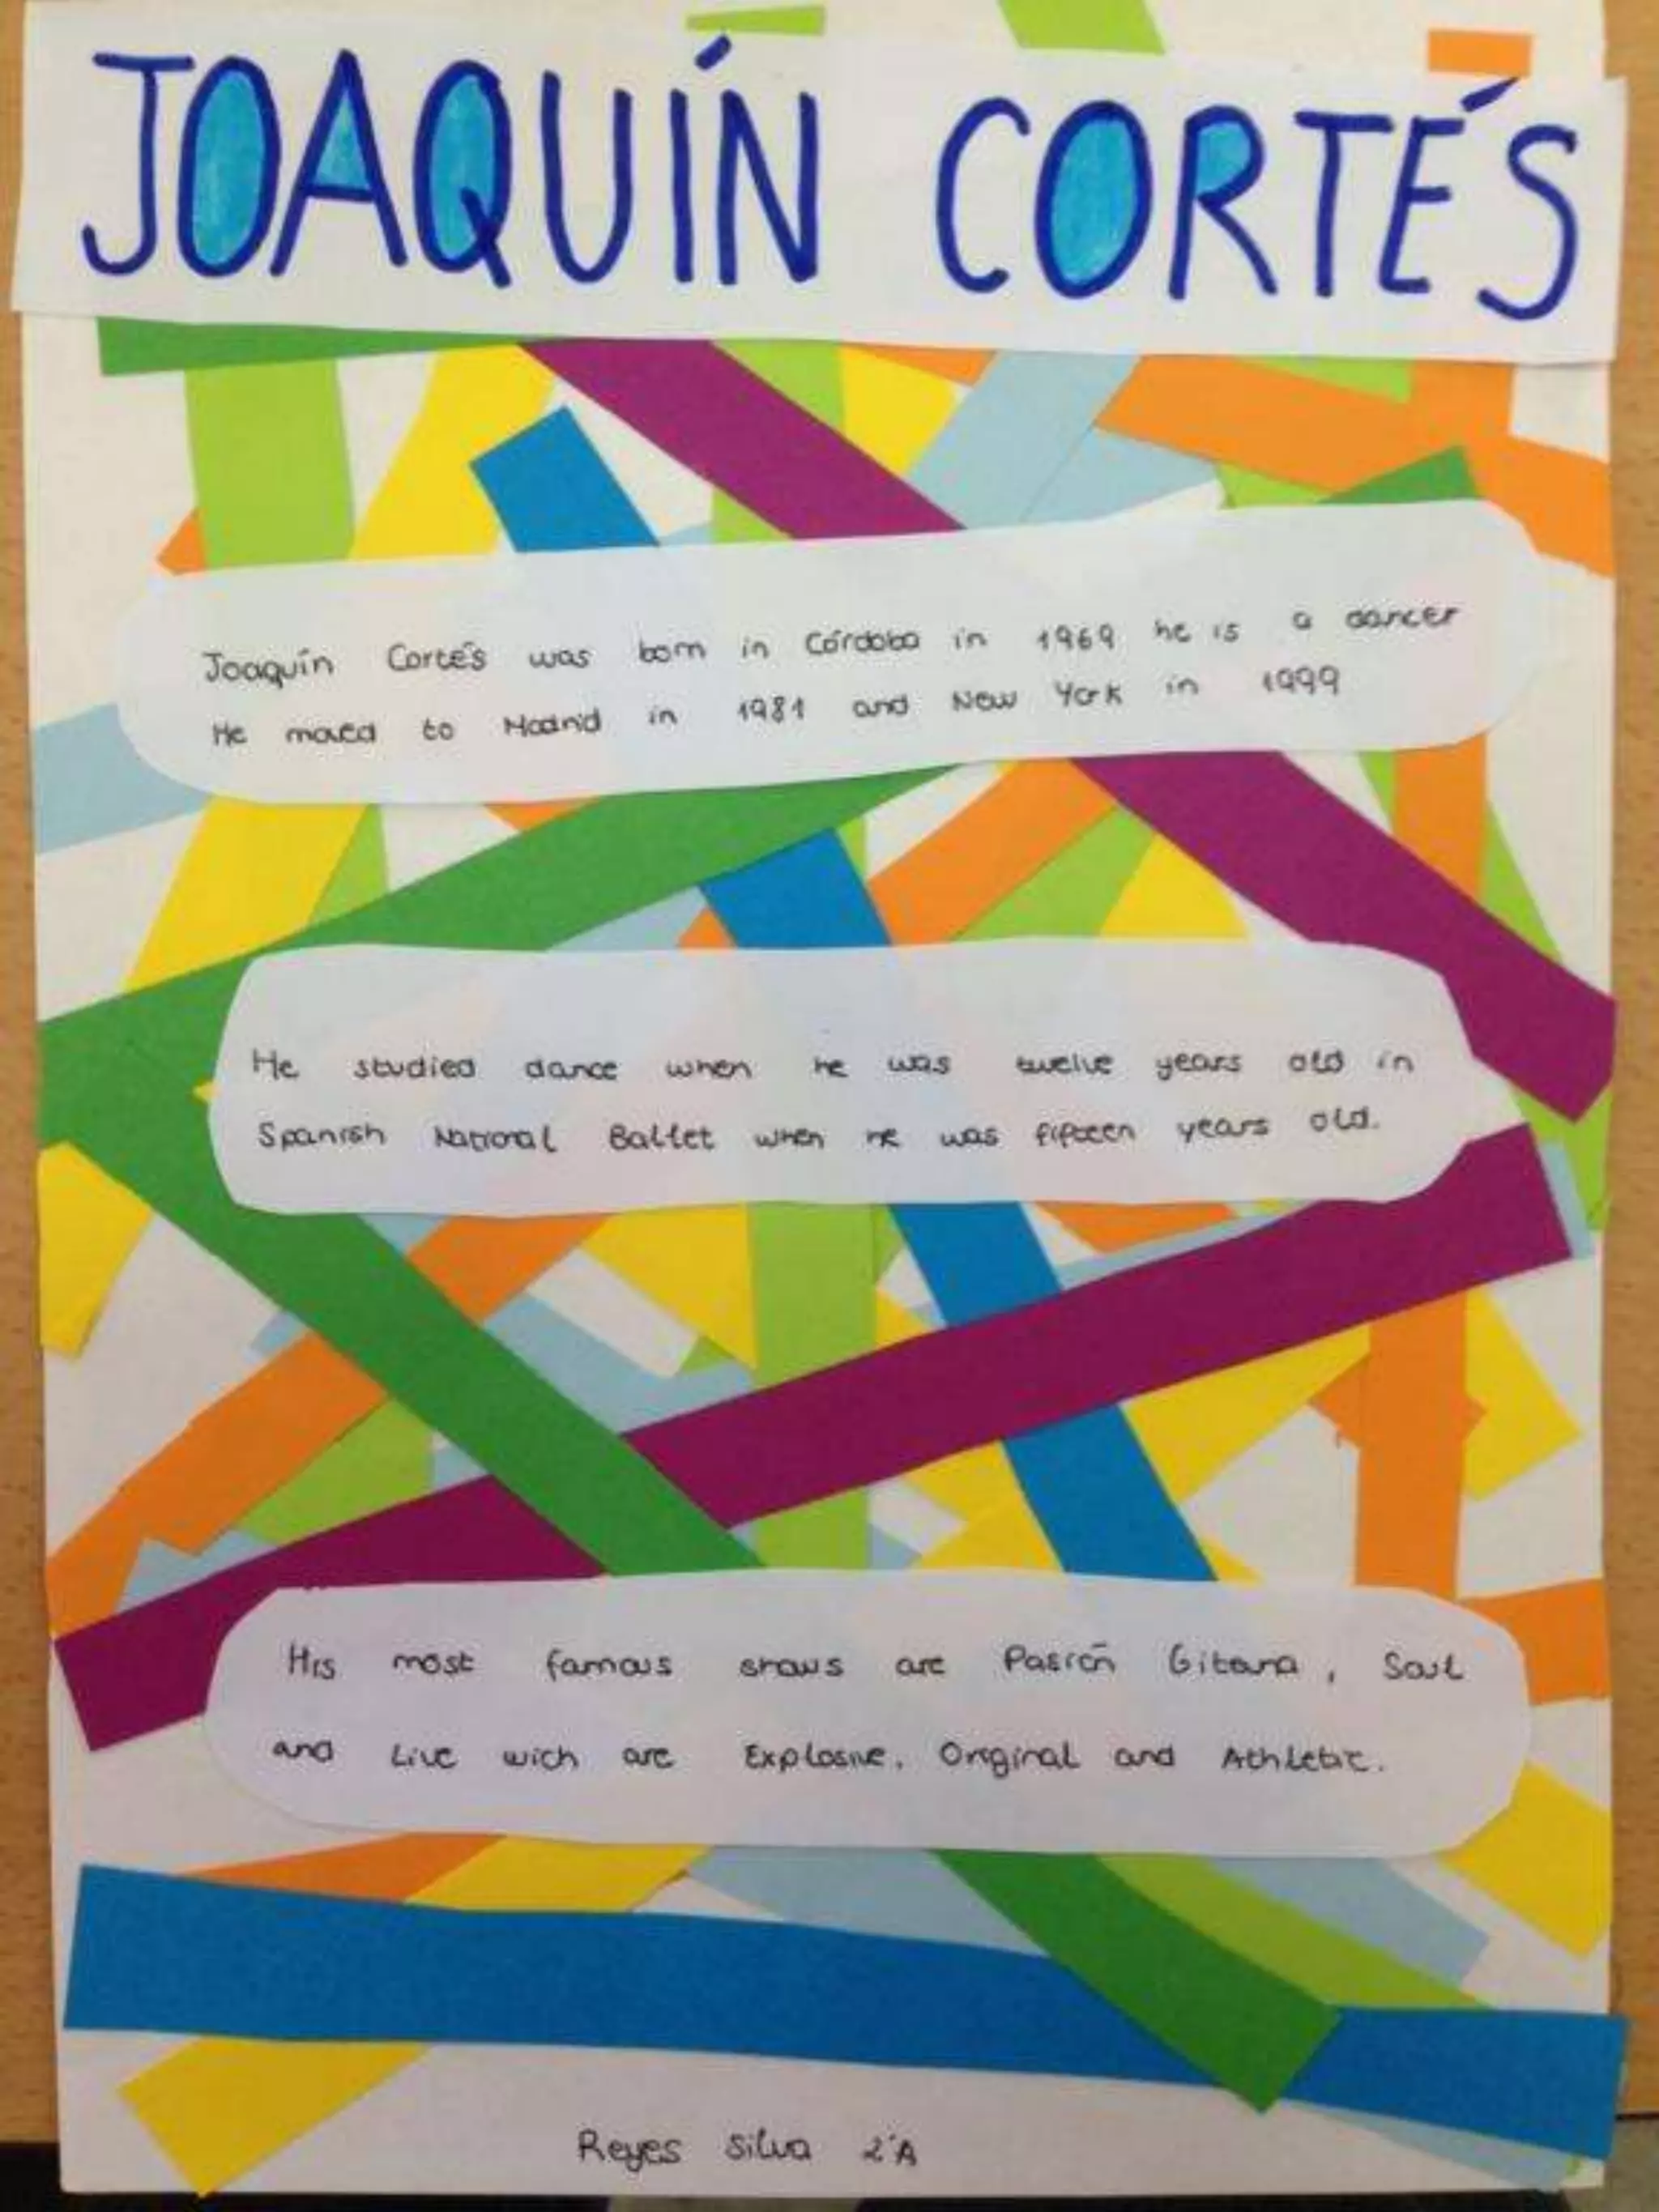 JOAQUÍN CORTÉS
Joaquín Cortés was born in Córdoba in 1969 he is a dancer
He moved to Madrid in 1981 and New York in 1999
He studied dance when he was twelve years old in
Spanish National Ballet when he was fifteen years old.
His most famous shows are Pasión Gitana, Soul
and Live wich are Explosive, Original and Athletic.
Reyes Silva 2ºA